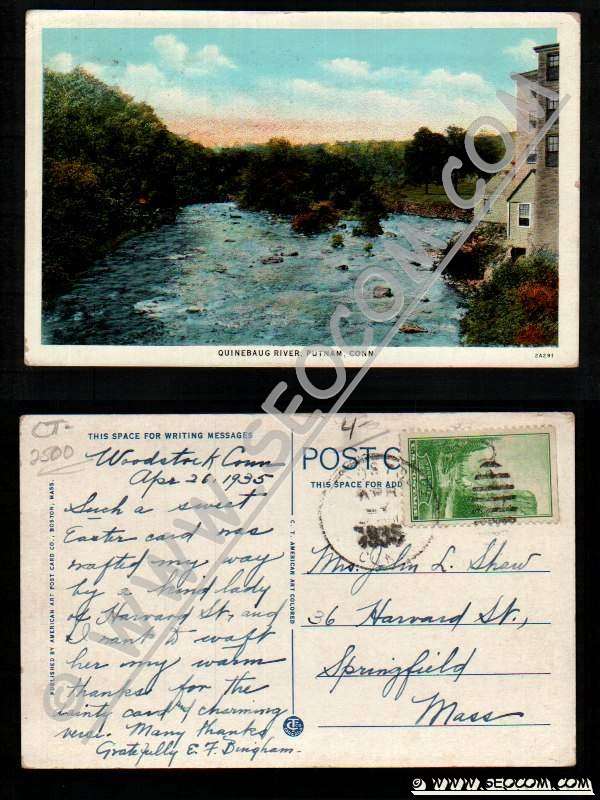 QUINEBAUG RIVER, PUTNAM, CONN.
2A291
© WWW.SEOCOM.COM
CT-
2500
THIS SPACE FOR WRITING MESSAGES
Woodstock Conn
Apr 26, 1935
Such a sweet
Easter card was
wafted my way
by a kind lady
of Harvard St, and
I want to waft
her my warm
thanks for the
dainty card & charming
verse. Many thanks
Gratefully E. F. Bingham.
PUBLISHED BY AMERICAN ART POST CARD CO., BOSTON, MASS.
C. T. AMERICAN ART COLORED
4-
POST C
THIS SPACE FOR ADD
1935
CONN
Mrs. John L. Shaw
36 Harvard St.,
Springfield
Mass
© WWW.SEOCOM.COM